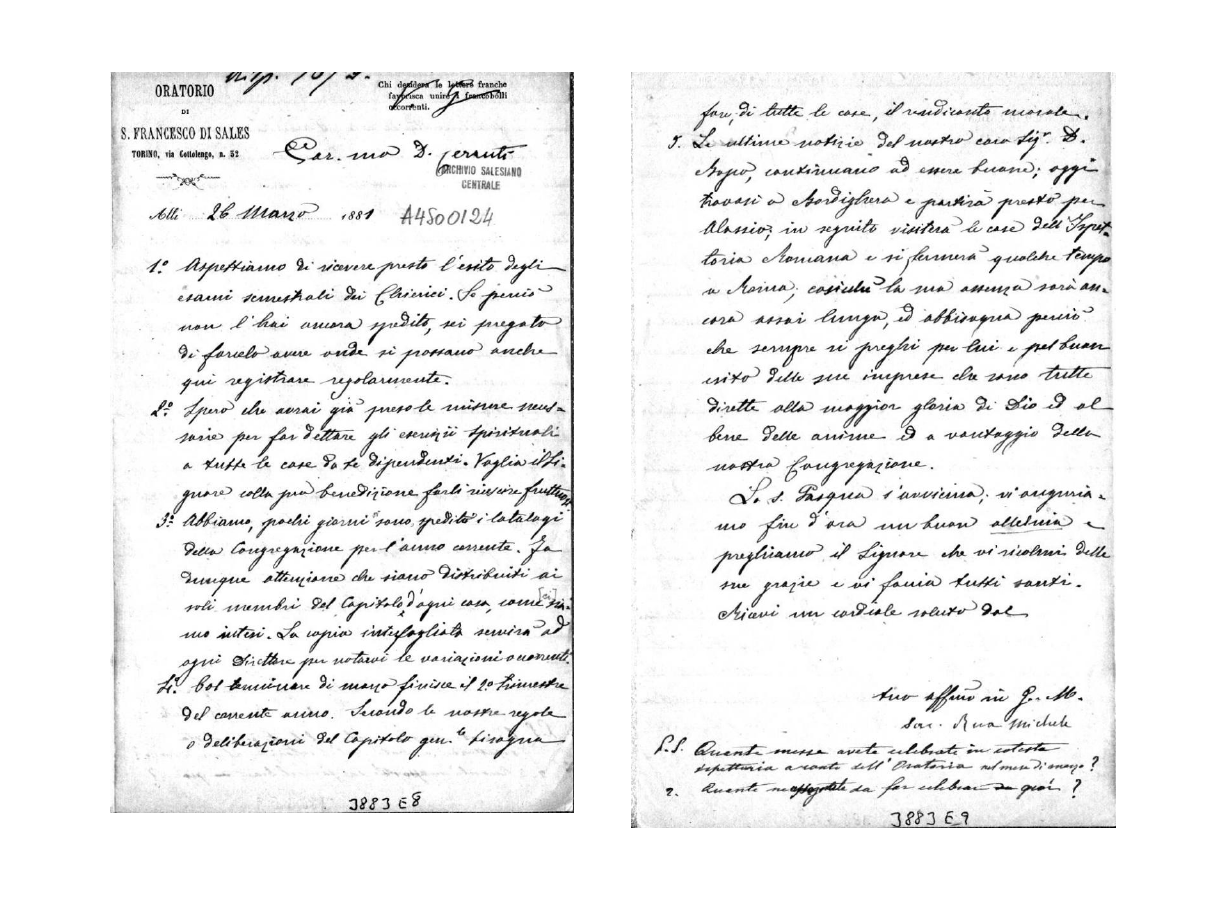 risp. 10/5.
ORATORIO
DI
S. FRANCESCO DI SALES
TORINO, via Cottolengo, n. 32
Chi desidera le lettere franche
favorisca unire i francobolli
occorrenti.
Car.mo D. Cerruti
ARCHIVIO SALESIANO
CENTRALE
Alli 26 Marzo 1881
A4500124
1.° Aspettiamo di ricevere presto l'esito degli
esami semestrali dei Chierici. Se perciò
non l'hai ancora spedito, sei pregato
di farcelo avere onde si possano anche
qui registrare regolarmente.
2.° Spero che avrai già preso le misure neces-
sarie per far dettare gli esercizii spirituali
a tutte le case da te dipendenti. Voglia il Si-
gnore colla sua benedizione farli riuscire fruttuosi.
3.° Abbiamo, pochi giorni sono, spedito i Cataloghi
della Congregazione per l'anno corrente. Fa
dunque attenzione che siano distribuiti ai
soli membri del Capitolo d'ogni casa, come sia-
[ci]
mo intesi. La copia interfogliata servirà ad
ogni Direttore per notarvi le variazioni occorrenti.
4.° Col terminare di marzo finisce il 2.° trimestre
del corrente anno. Secondo le nostre regole
o deliberazioni del Capitolo gen.le bisogna
3883 E8
fare, di tutte le case, il rendiconto morale.
5. Le ultime notizie del nostro caro Sig.r D.
Bosco, continuano ad essere buone; oggi
trovasi a Bordighera e partirà presto per
Alassio; in seguito visiterà le case dell'Ispet-
toria Romana e si fermerà qualche tempo
a Roma; cosicché la sua assenza sarà an-
cora assai lunga, ed abbisogna perciò
che sempre si preghi per lui e pel buon
esito delle sue imprese che sono tutte
dirette alla maggior gloria di Dio ed al
bene delle anime ed a vantaggio della
nostra Congregazione.
La s. Pasqua s'avvicina; vi auguria-
mo fin d'ora un buon alleluia e
preghiamo il Signore che vi ricolmi delle
sue grazie e vi faccia tutti santi.
Ricevi un cordiale saluto dal
tuo aff.mo in G. M.
Sac. Rua Michele
P.S. Quante messe avete celebrate in cotesta
ispettoria a conto dell'Oratorio nel mese di marzo?
2. Quante da far celebrare ?
3883 E9